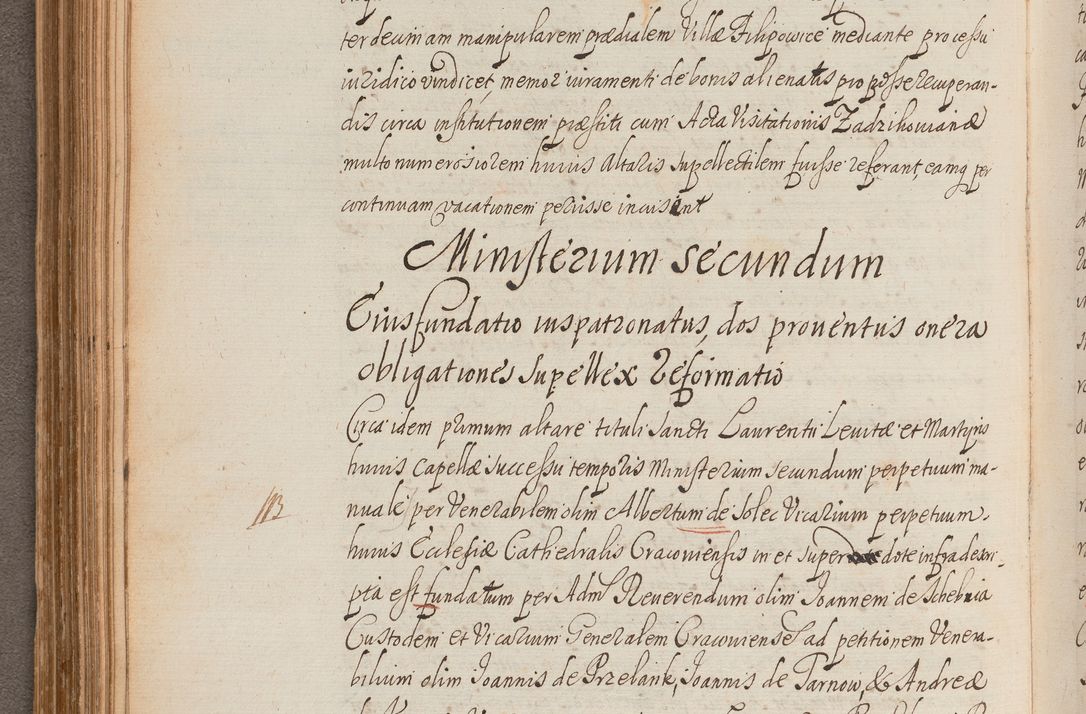 ter decimam manipularem prædialem Villæ Filipowice mediante processu
iuridico vindicet, memor iuramenti de bonis alienatis pro posse recuperan-
dis circa institutionem præstiti cum Acta Visitationis Zadzikowianæ
multo numerosiorem huius Altaris supellectilem fuisse referant, eamq per
continuam vacationem periisse incusent
Ministerium secundum
Eius fundatio iuspatronatus, dos prouentus onera
obligationes supellex reformatio
Circa idem primum altare tituli Sancti Laurentii Leuitæ et Martyris
huius Capellæ successu temporis Ministerium secundum perpetuum ma-
nuale per Venerabilem olim Albertum de Solec Vicarium perpetuum
huius Ecclesiæ Cathedralis Cracouiensis in et super dote infra descri-
pta est fundatum per Adm Reuerendum olim Joannem de Schebnia
Custodem et Vicarium Generalem Cracouiense ad petitionem Venera-
bilium olim Joannis de Przelank, Joannis de Tarnow, & Andreæ